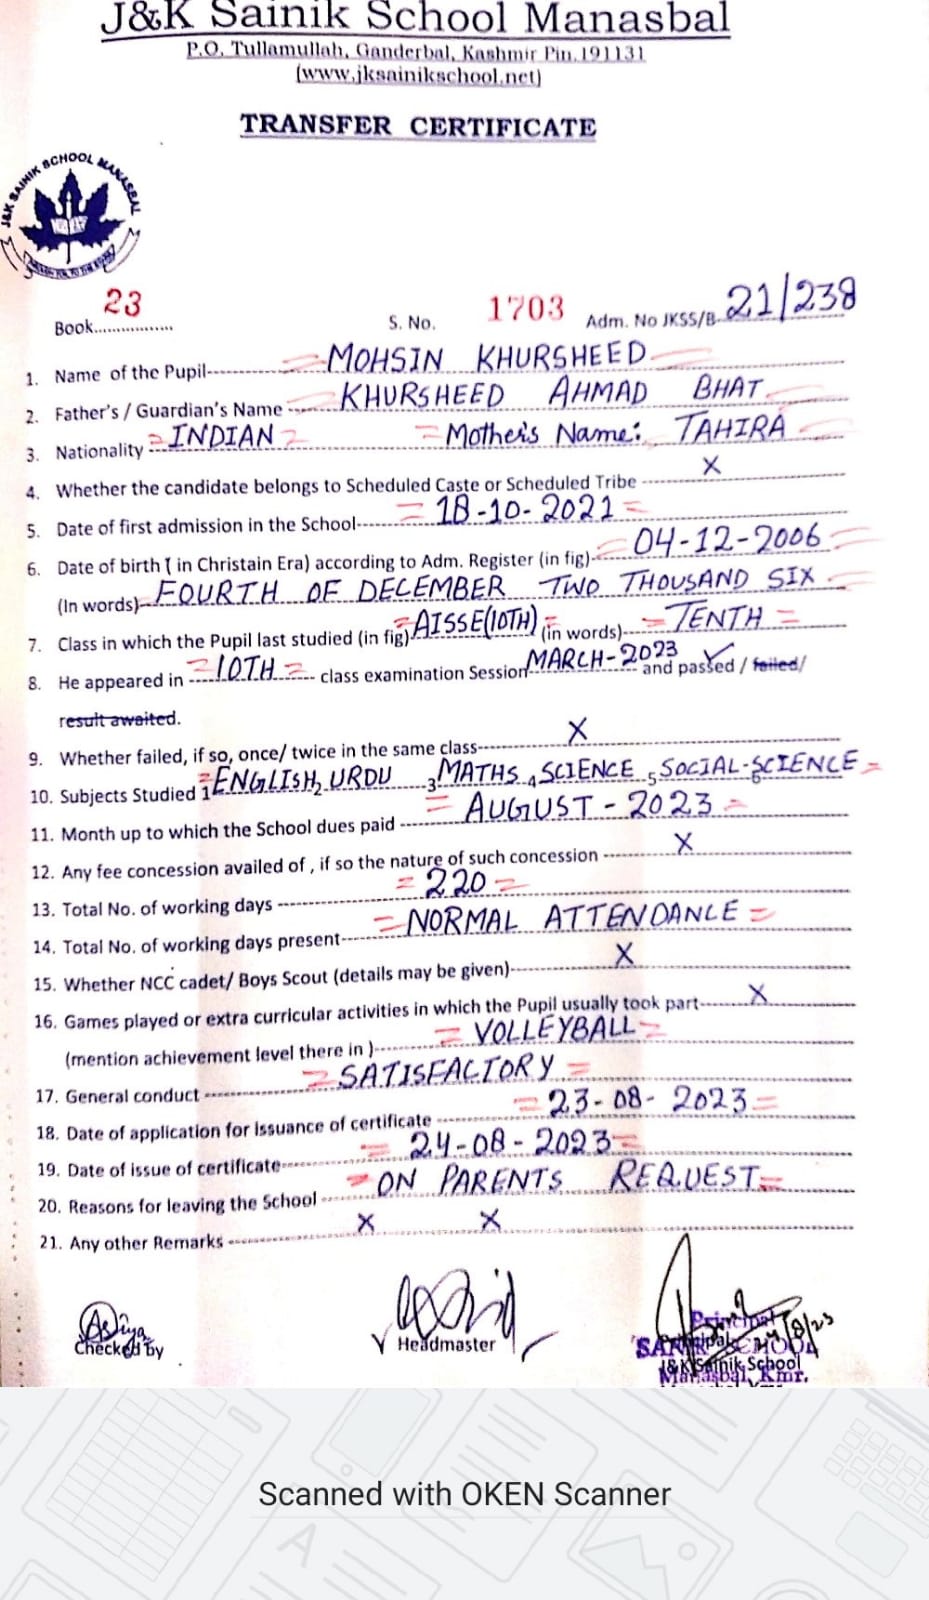 J&K Sainik School Manasbal
P.O. Tullamullah, Ganderbal, Kashmir Pin. 191131
(www.jksainikschool.net)
TRANSFER CERTIFICATE
J&K SAINIK SCHOOL MANASBAL
Book 23 S. No. 1703 Adm. No JKSS/B 21/238
1. Name of the Pupil MOHSIN KHURSHEED
2. Father's / Guardian's Name KHURSHEED AHMAD BHAT
3. Nationality INDIAN Mother's Name: TAHIRA
4. Whether the candidate belongs to Scheduled Caste or Scheduled Tribe X
5. Date of first admission in the School 18-10-2021
6. Date of birth ( in Christain Era) according to Adm. Register (in fig) 04-12-2006
(In words) FOURTH OF DECEMBER TWO THOUSAND SIX
7. Class in which the Pupil last studied (in fig) AISSE(10TH) (in words) TENTH
8. He appeared in 10TH class examination Session MARCH-2023 and passed / failed/
result awaited.
9. Whether failed, if so, once/ twice in the same class X
10. Subjects Studied 1 ENGLISH 2 URDU 3 MATHS 4 SCIENCE 5 SOCIAL-SCIENCE 6
11. Month up to which the School dues paid AUGUST - 2023
12. Any fee concession availed of , if so the nature of such concession X
13. Total No. of working days 220
14. Total No. of working days present NORMAL ATTENDANCE
15. Whether NCC cadet/ Boys Scout (details may be given) X
16. Games played or extra curricular activities in which the Pupil usually took part X
(mention achievement level there in ) VOLLEYBALL
17. General conduct SATISFACTORY
18. Date of application for issuance of certificate 23-08-2023
19. Date of issue of certificate 24-08-2023
20. Reasons for leaving the School ON PARENTS REQUEST
21. Any other Remarks X X
Checked by Headmaster Principal
J&K Sainik School
Manasbal, Kmr.
Scanned with OKEN Scanner